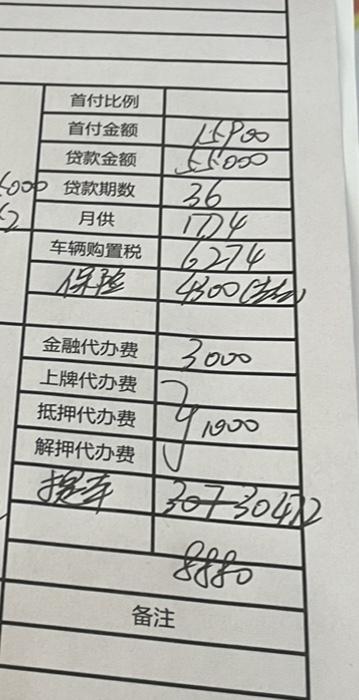 首付比例
首付金额 15900
贷款金额 55000
贷款期数 36
月供 1774
车辆购置税 6274
保险 4300
金融代办费 3000
上牌代办费
抵押代办费 1900
解押代办费
提车 30472
8880
备注